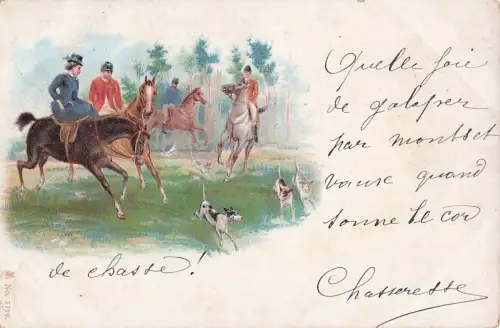 Quelle joie
de galoper
par monts et
vaux quand
sonne le cor
de chasse!
Chasseresse
No. 3796.